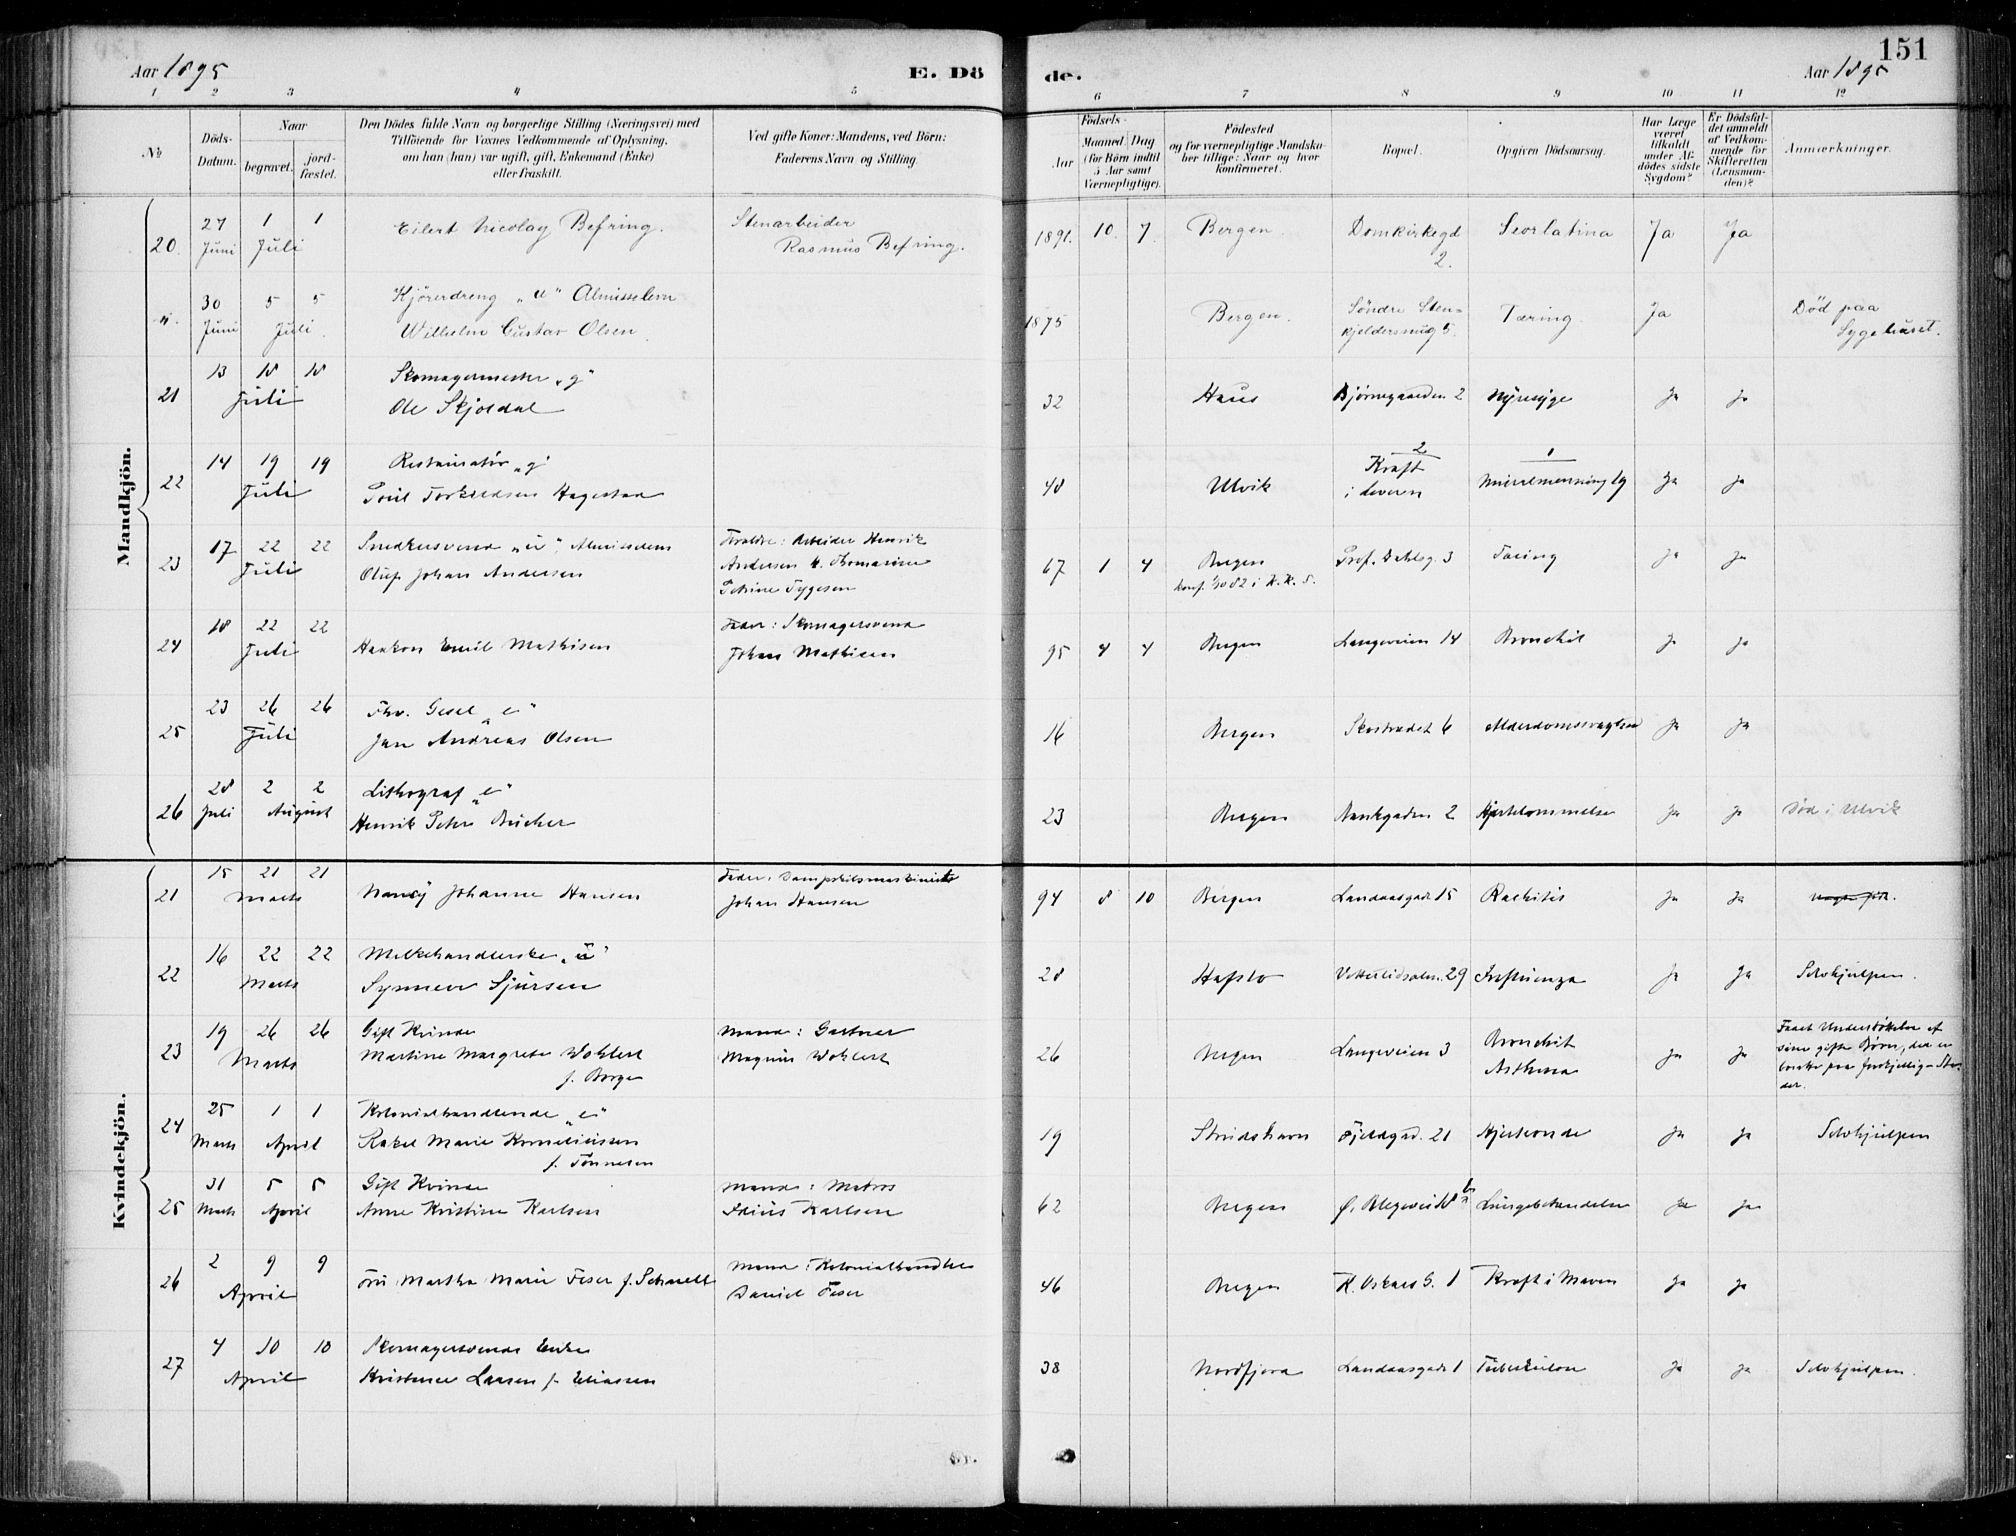 Aar 1895
E. Dö
de.
Aar 1895
151
1 2 3 4 5 6 7 8 9 10 11 12
No
Döds-Datum.
Naar
begravet.
jord-fæstet.
Den Dödes fulde Navn og borgerlige Stilling (Næringsvei) med
Tilföiende for Voxnes Vedkommende af Oplysning,
om han (hun) var ugift, gift, Enkemand (Enke)
eller fraskilt.
Ved gifte Koner: Mandens, ved Börn:
Faderens Navn og Stilling.
Födsels-
Aar
Maaned Dag
(for Börn indtil
5 Aar samt
Værnepligtige).
Födested
og for værnepligtige Mandska-
ber tillige: Naar og hvor
konfirmeret.
Bopæl.
Opgiven Dödsaarsag.
Har Læge
været
tilkaldt
under Af-
dödes sidste
Sygdom?
Er Dödsfal-
det anmeldt
af Vedkom-
mende for
Skifteretten
(Lensman-
den)?
Anmærkninger.
Mandkjön.
20. 27 Juni 1 1 Juli Eilert Nicolay Befring. Stenarbeider
Rasmus Befring. 1891. 10. 7. Bergen. Domkirkegd
2. Ja Ja
30 Juni 5 5 Juli. Kjörerdreng "u"
Wilhelm Gustav Olsen. 1875 Bergen. Søndre Sten-
kjeldersmug 5. Tæring. Ja Død paa
Sygehuset.
21 13 18 18 Juli Skomagermester "g"
Ole Skjoldal 32 Haus Bjørnegaarden 2 Nyresyge Ja Ja
22 14 19 19 Juli Restauratør "g"
Hagestad 48 Ulvik 2
Kraft
i Leveren 1
Ja Ja
23 17 22 22 Juli Snedkersvend "u"
Oluf Johan Andersen Forældre: Arbeider Henrik
Andersen
Petrine Tygesen 67 1 4 Bergen Prof. Dahlsg. 3 Tæring Ja Ja
24 18 22 22 Juli Haakon Emil Mathisen Fader: Skomagersvend
Johan Mathisen 95 4 4 Bergen Langeveien 14 Bronchit Ja Ja
25 23 26 26 Juli Fhv. Gesel "e"
Jan Andreas Olsen 16 Bergen Skostrædet 6 Alderdomssvaghed Ja Ja
26 28 Juli 2 2 August Lithograf "e"
Henrik Peter Bücher 23 Bergen Bankgaden 2 Hjertelammelse Ja Ja Død i Ulvik
Kvindekjön.
21 15 21 21 Marts Nancy Johanne Hansen Fader: Dampskibsmaskinist
Johan Hansen 94 8 10 Bergen Landaasgade 15 Rachitis Ja Ja
22 16 22 22 Marts Melkehandlerske "u"
Synneve Sjursen 28 Hafslo Vetterlidsalm. 29 Influenza Ja Ja Selvhjulpen.
23 19 26 26 Marts Gift Kvinde
Martine Margrete Wohlert
f. Borge Mand: Gartner
Magnus Wohlert 26 Bergen Langeveien 3 Bronchit
Asthma Ja Ja Faaet Understøttelse af
sine gifte Børn, der er
bosatte paa forskjellige Ste-
der.
24 25 Marts 1 1 April Kolonialhandlende "e"
Rakel Marie Korneliussen
f. Tønnesen 19 Strudshavn Fjeldgd. 21 Hjerteonde Ja Ja Selvhjulpen
25 31 Marts 5 5 April Gift Kvinde
Anne Kristine Karlsen Mand: Matros
Karlsen 62 Bergen Ø. Blegevei Lungebetændelse Ja Ja
26 2 9 9 April Fru Martha Marie Feser f. Schnell Mand: Kolonialhandler
Daniel Feser 46 Bergen K. Oskars G. 1 Kræft i Maven Ja Ja
27 4 10 10 April Skomagersvends Enke
Kristence Larsen f. Eliassen 38 Nordfjord Landaasgade 1 Tuberkulose Ja Ja Selvhjulpen.